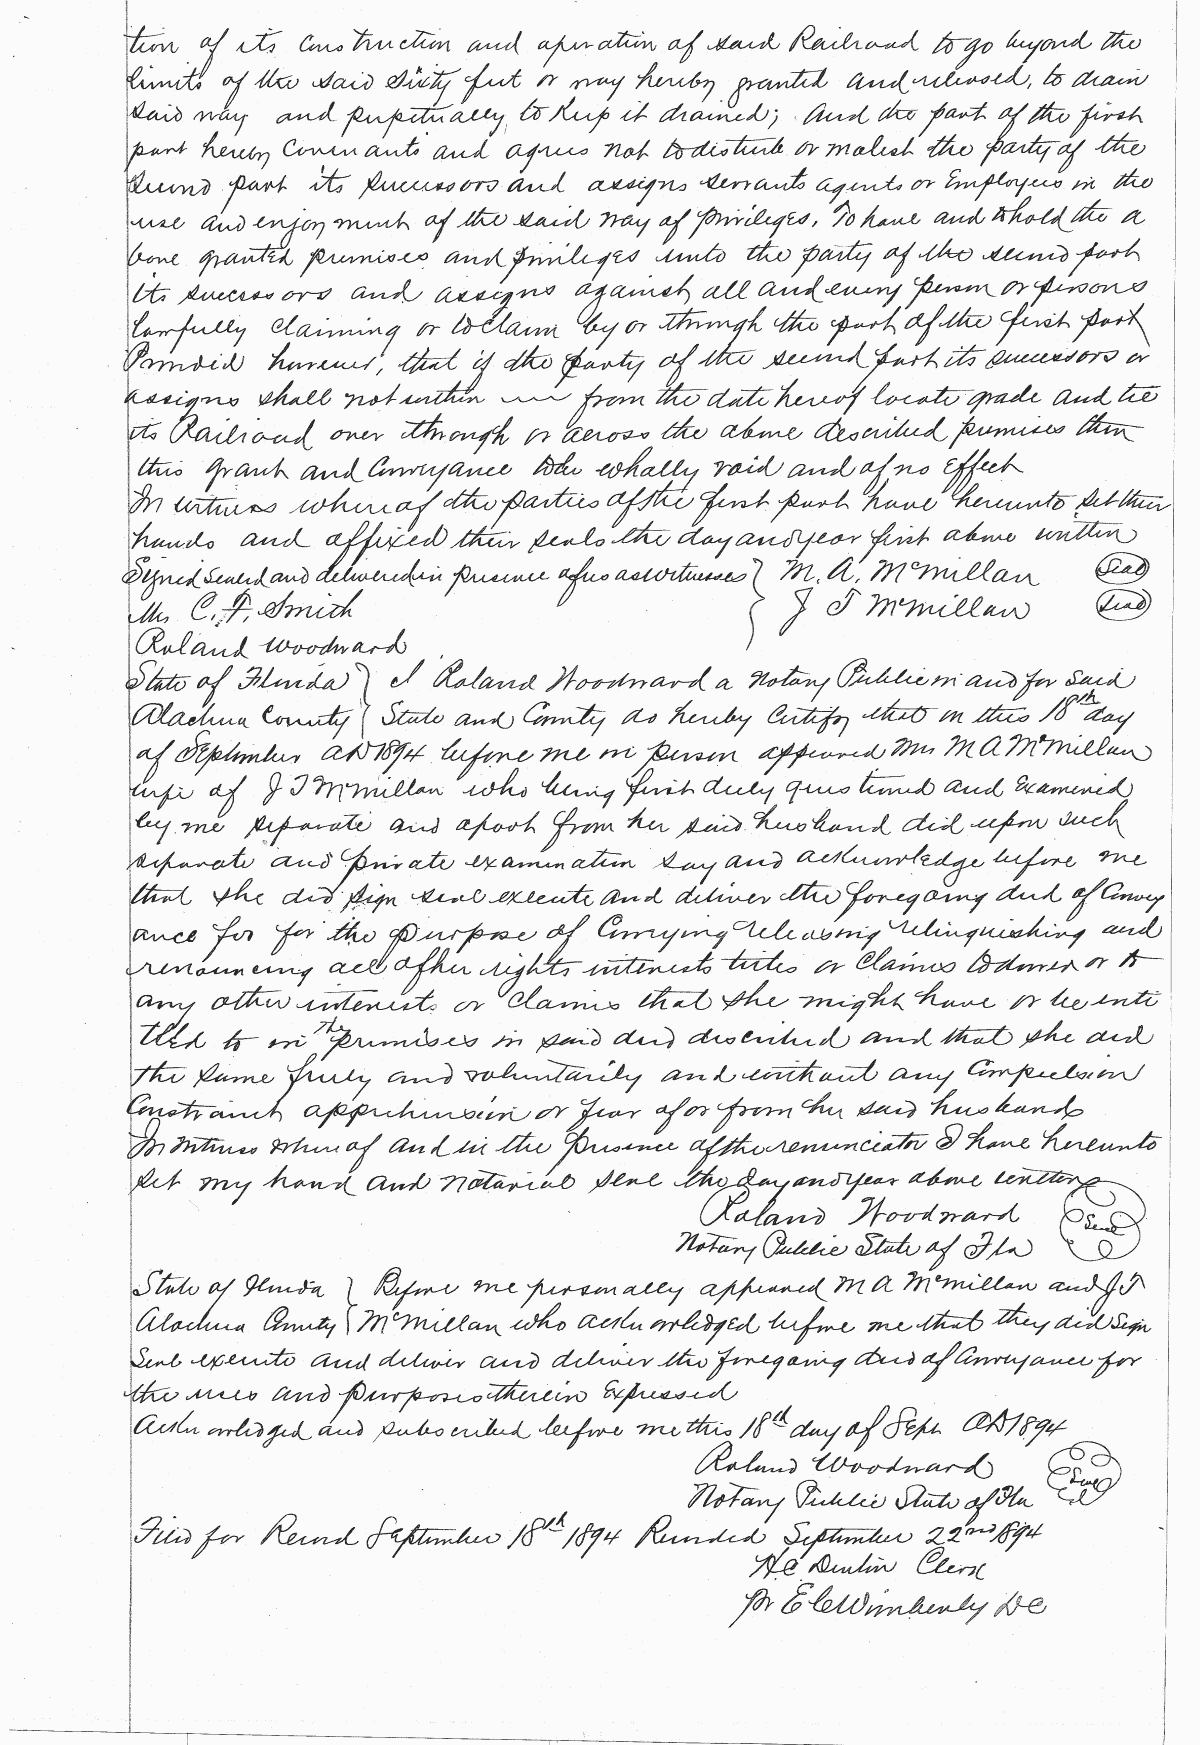 tion of its Construction and operation of said Railroad to go beyond the
limits of the said Sixty feet or way hereby granted and released, to drain
said way and perpetually to Keep it drained; And the part of the first
part hereby Covenants and agrees not to disturb or molest the party of the
second part its successors and assigns servants agents or Employees in the
use and enjoyment of the said way of privileges. To have and to hold the a
bove granted premises and privileges unto the party of the second part
its successors and assigns against all and every person or persons
lawfully claiming or to claim by or through the part of the first part
Provided however, that if the party of the second part its successors or
assigns shall not within from the date hereof locate grade and tie
its Railroad over through or across the above described premises then
this grant and Conveyance to be wholly void and of no Effect
In witness whereof the parties of the first part have hereunto set their
hands and affixed their seals the day and year first above written
Signed Sealed and delivered in presence of us as Witnesses } M. A. McMillan (Seal)
Mrs C. F. Smith } J T McMillan (Seal)
Roland Woodward
State of Florida } I Roland Woodward a Notary Public in and for said
Alachua County { State and County do hereby Certify that on this 18th day
of September AD 1894 before me in person appeared Mrs M A McMillan
wife of J T McMillan who being first duly questioned and Examined
by me separate and apart from her said husband did upon such
separate and private examination say and acknowledge before me
that she did sign seal execute and deliver the foregoing deed of Convey
ance for for the purpose of Conveying releasing relinquishing and
renouncing all of her rights interests titles or Claims to dower or to
any other interests or Claims that she might have or be enti
tled to in The premises in said deed described and that she did
the same freely and voluntarily and without any Compulsion
Constraint apprehension or fear of or from her said husband
In Witness whereof and in the presence of the renunciator I have hereunto
set my hand and Notarial seal the day and year above written
Roland Woodward (Seal)
Notary Public State of Fla
State of Florida } Before me personally appeared M A McMillan and J T
Alachua County { McMillan who acknowledged before me that they did Sign
Seal execute and deliver and deliver the foregoing deed of Conveyance for
the uses and purposes therein Expressed
Acknowledged and subscribed before me this 18th day of Sept AD 1894
Roland Woodward (Seal)
Notary Public State of Fla
Filed for Record September 18th 1894 Recorded September 22nd 1894
H C Denton Clerk
Pr E C Wimberly D C